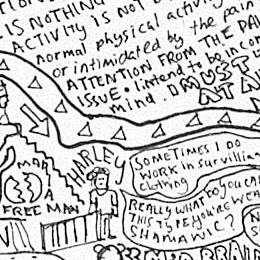 IS NOTHING
ACTIVITY IS NOT
normal physical activ
or intimidated by the pain
ATTENTION FROM THE PA
ISSUE. I intend to be in con
mind. D MUST
AT
HARLEY
MAN
A
FREE MAN
SOMETIMES I DO
WORK IN SURVILLIAN
Clothing
REALLY WHAT DO YOU CA
THIS TYPE YOU'RE WE
SHAMANIC?
BRAIN